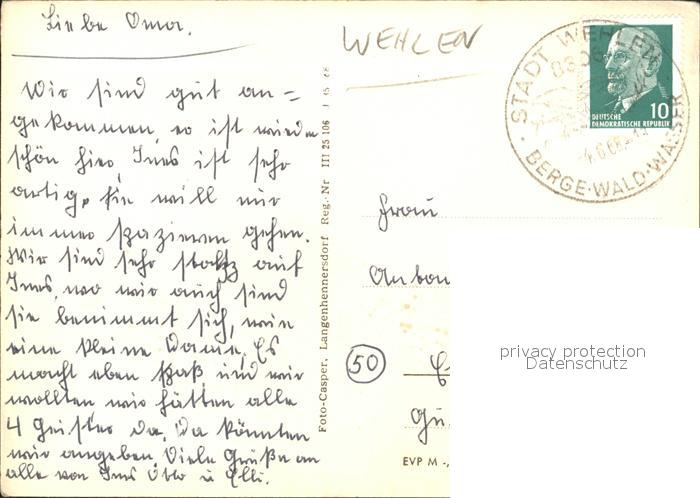 Liebe Oma.
Wir sind gut an=
gekommen, es ist wieder
schön hier. Ines ist sehr
artig, sie will nur
immer spazieren gehen.
Wir sind sehr stoltz auf
Ines, wo wir auch sind
sie benimmt sich, wie
eine kleine Dame. Es
macht eben spaß und wir
wollten wir hätten alle
4 Geister da. Da könnten
wir angeben. Viele Grüße an
alle von Ines Otto u Elli.
Foto-Casper, Langenhennersdorf Reg.-Nr III 25 106
WEHLEN
STADT WEHLEN
BERGE·WALD·WASSER
10
DEUTSCHE
DEMOKRATISCHE REPUBLIK
Frau
50
EVP M -,
privacy protection
Datenschutz